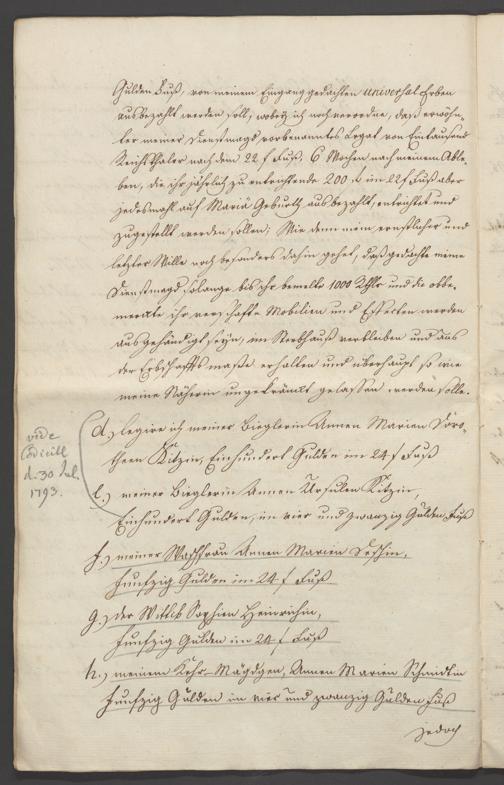 Gulden Fuß, von meinem Eingang gedachten universal Erben
ausbezahlt werden soll, wobey ich noch verordne, daß erwöhn-
ter meiner Dienstmagd vorbenanntes Legat von Eintausend
Reichsthaler nach dem 22 f Fuß, 6 Wochen nach meinem Able-
ben, die ihr jährlich zu entrichtende 200 f im 22 f Fuß aber
jedesmahl auf Mariä Geburth ausbezahlt, entrichtet und
zugestellt werden sollen; Wie denn mein ernstlicher und
letzter Wille noch besonders dahin gehet, daß gedachte meine
Dienstmagd solange bis ihr bemelte 1000 Rthlr und die obbe-
merckte ihr verschafte Mobilien und Effecten werden
ausgehändigt seyn, im Sterbhauß verbleiben und aus
der Erbschafts masse erhalten und überhaupt so wie
meine Näherin ungekränckt gelassen werden solle.
d.) legire ich meiner Bieglerin Annen Marien Doro-
theen Kitzin, Einhundert Gulden im 24 f Fuß
e.) meiner Bieglerin Annen Ursulen Kitzin,
Einhundert Gulden, im vier und zwanzig Gulden Fuß
f.) meiner Waschfrau Annen Marien
Funfzig Gulden im 24 f Fuß
g.) der Wittib Sophien Heinrichin,
Funfzig Gulden im 24 f Fuß
h.) meinem Kehr-Mägdgen, Annen Marien Schmidtin
Funfzig Gulden im vier und zwanzig Gulden Fuß
jedoch
vide
Codicill
d. 30 Jul.
1793.